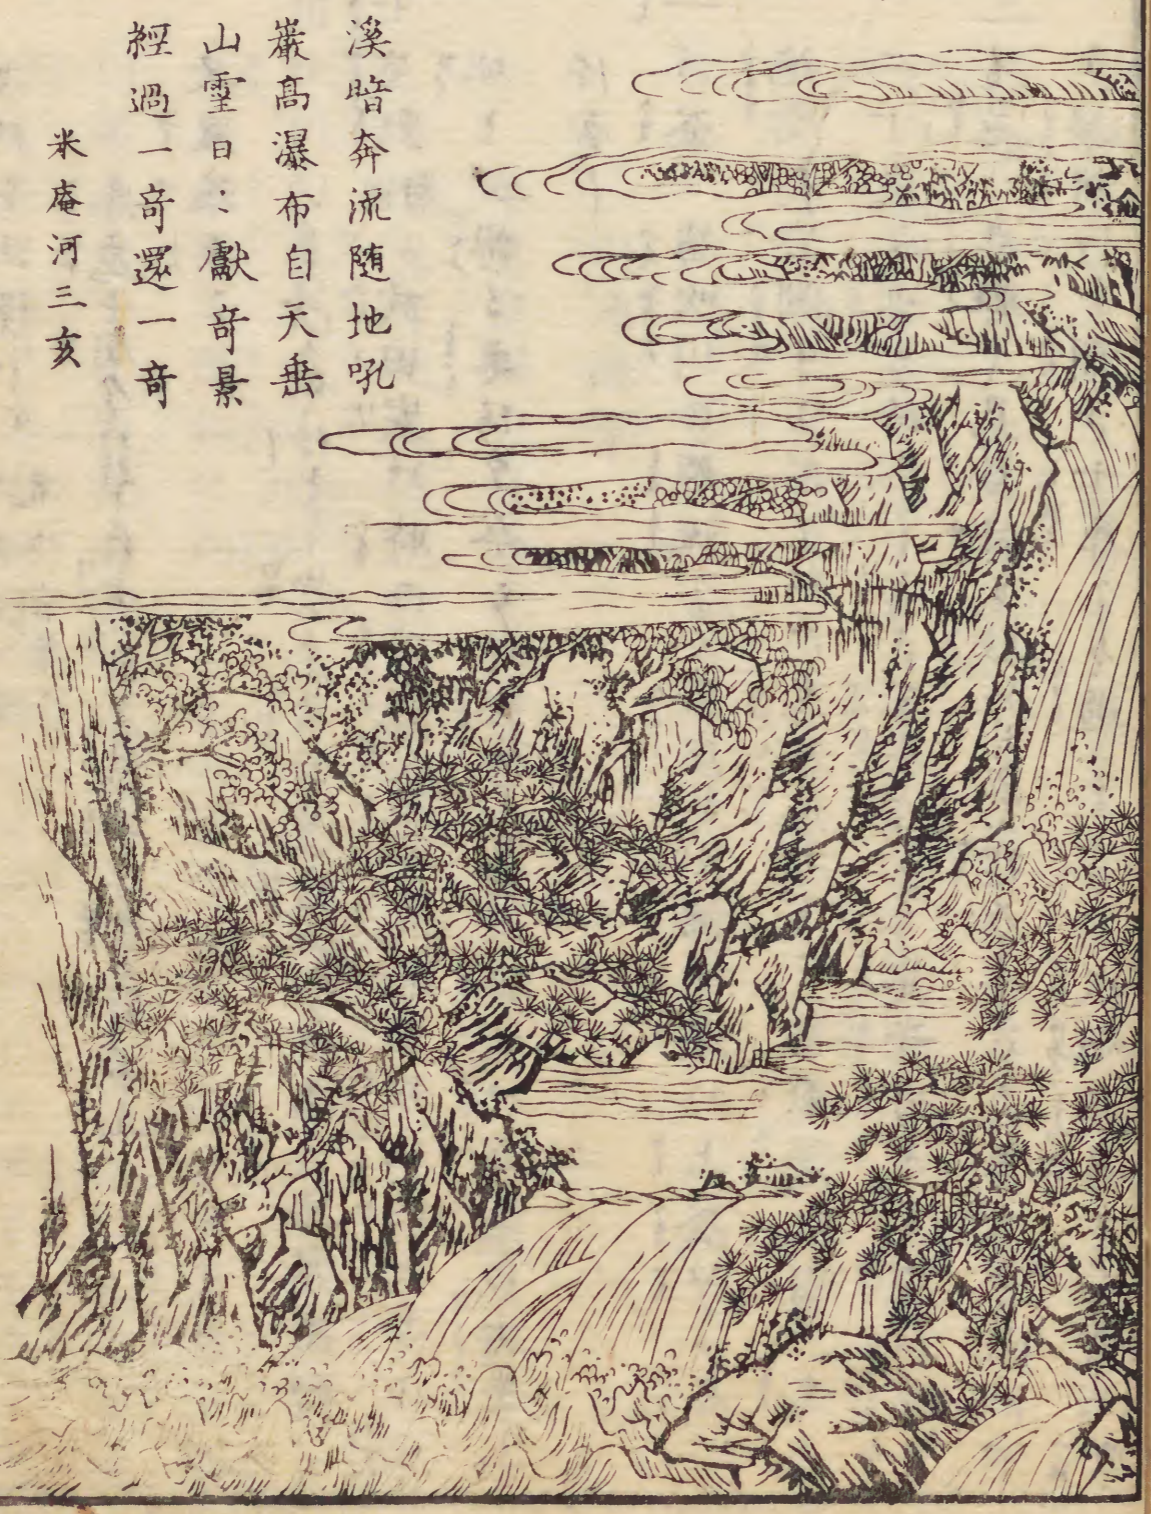 溪暗奔流随地吼
巖高瀑布自天垂
山靈日〻獻奇景
經過一奇還一奇
米庵河三亥